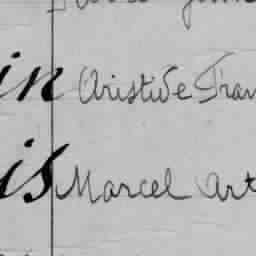 in Aristide Fran
is Marcel Art